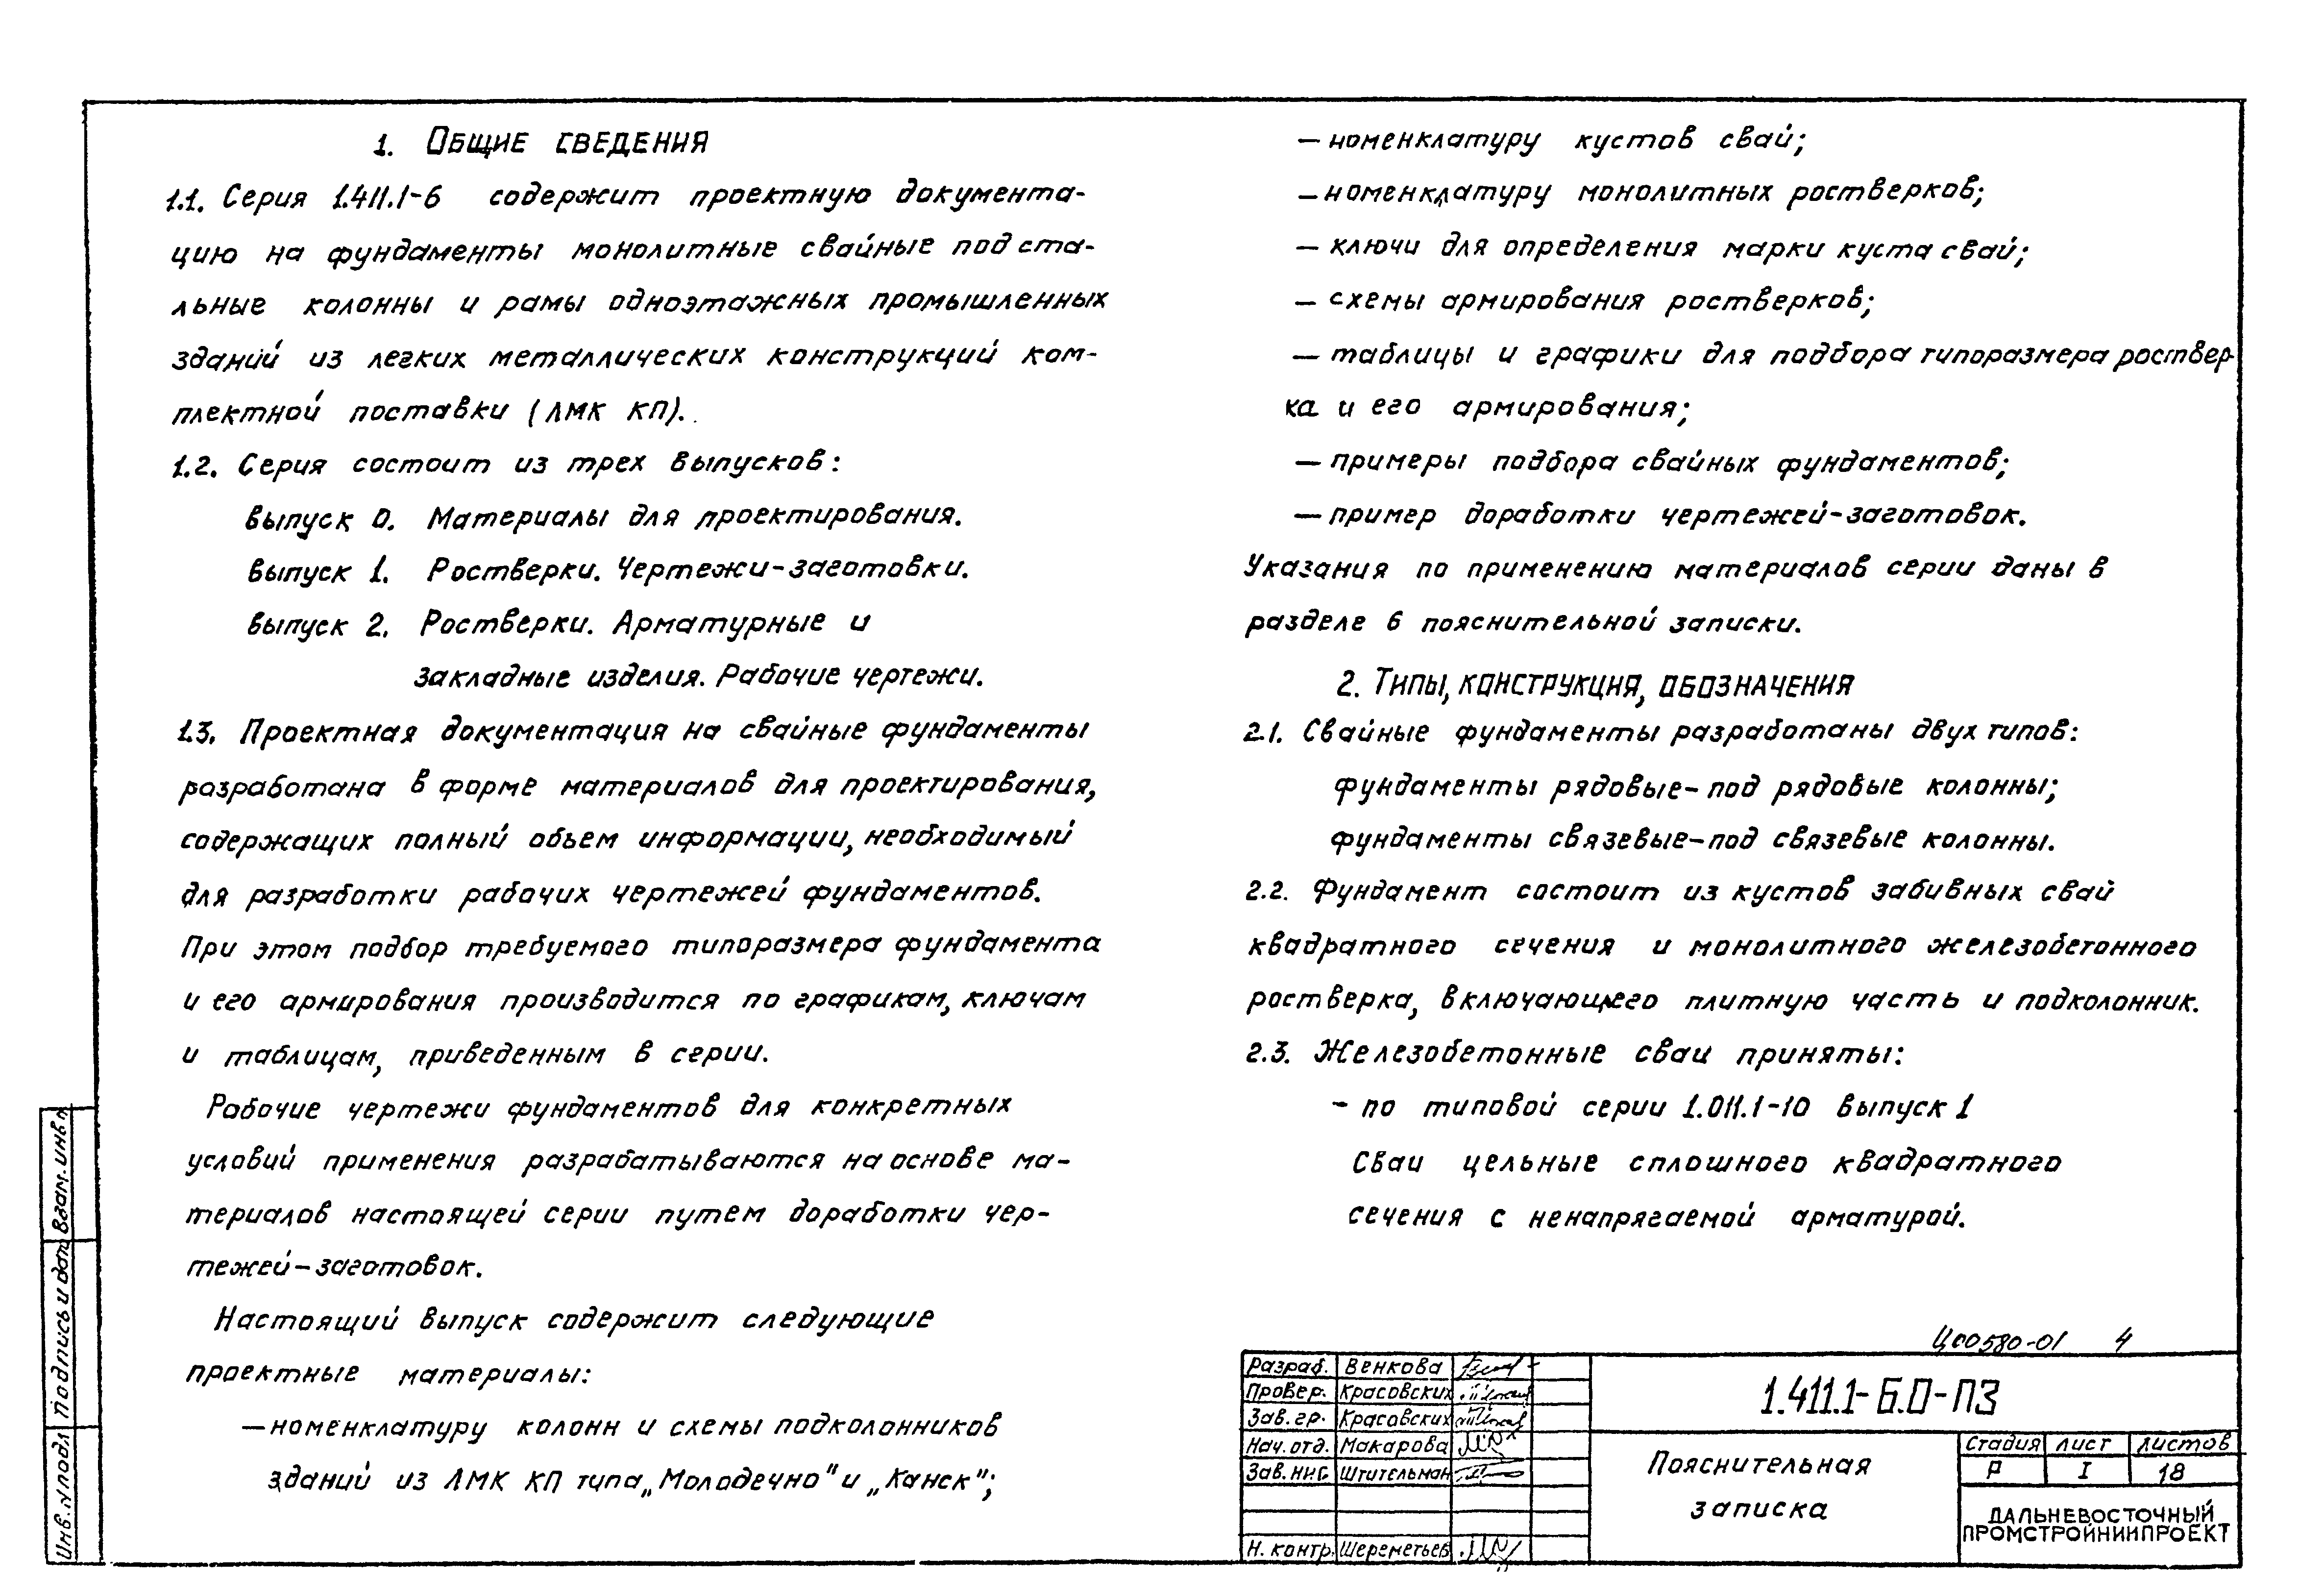 1. Общие сведения
1.1. Серия 1.411.1-6 содержит проектную документа-
цию на фундаменты монолитные свайные под ста-
льные колонны и рамы одноэтажных промышленных
зданий из легких металлических конструкций ком-
плектной поставки (ЛМК КП).
1.2. Серия состоит из трех выпусков:
выпуск 0. Материалы для проектирования.
выпуск 1. Ростверки. Чертежи-заготовки.
выпуск 2. Ростверки. Арматурные и
закладные изделия. Рабочие чертежи.
1.3. Проектная документация на свайные фундаменты
разработана в форме материалов для проектирования,
содержащих полный объем информации, необходимый
для разработки рабочих чертежей фундаментов.
При этом подбор требуемого типоразмера фундамента
и его армирования производится по графикам, ключам
и таблицам, приведенным в серии.
Рабочие чертежи фундаментов для конкретных
условий применения разрабатываются на основе ма-
териалов настоящей серии путем доработки чер-
тежей-заготовок.
Настоящий выпуск содержит следующие
проектные материалы:
— номенклатуру колонн и схемы подколонников
зданий из ЛМК КП типа „Молодечно" и „Канск";
— номенклатуру кустов свай;
— номенклатуру монолитных ростверков;
— ключи для определения марки куста свай;
— схемы армирования ростверков;
— таблицы и графики для подбора типоразмера роствер-
ка и его армирования;
— примеры подбора свайных фундаментов;
— пример доработки чертежей-заготовок.
Указания по применению материалов серии даны в
разделе 6 пояснительной записки.
2. Типы, конструкция, обозначения
2.1. Свайные фундаменты разработаны двух типов:
фундаменты рядовые-под рядовые колонны;
фундаменты связевые-под связевые колонны.
2.2. Фундамент состоит из кустов забивных свай
квадратного сечения и монолитного железобетонного
ростверка, включающего плитную часть и подколонник.
2.3. Железобетонные сваи приняты:
- по типовой серии 1.011.1-10 выпуск 1
Сваи цельные сплошного квадратного
сечения с ненапрягаемой арматурой.
Ц00580-01 4
Разраб. Венкова
Провер. Красовских
Зав. гр. Красовских
Нач. отд. Макарова
Зав. НИС Штительман
Н. контр. Шереметьев
1.411.1-6.0-ПЗ
Пояснительная
записка
Стадия Лист Листов
Р I 18
ДАЛЬНЕВОСТОЧНЫЙ
ПРОМСТРОЙНИИПРОЕКТ
Инв. N подл Подпись и дата Взам. инв. n